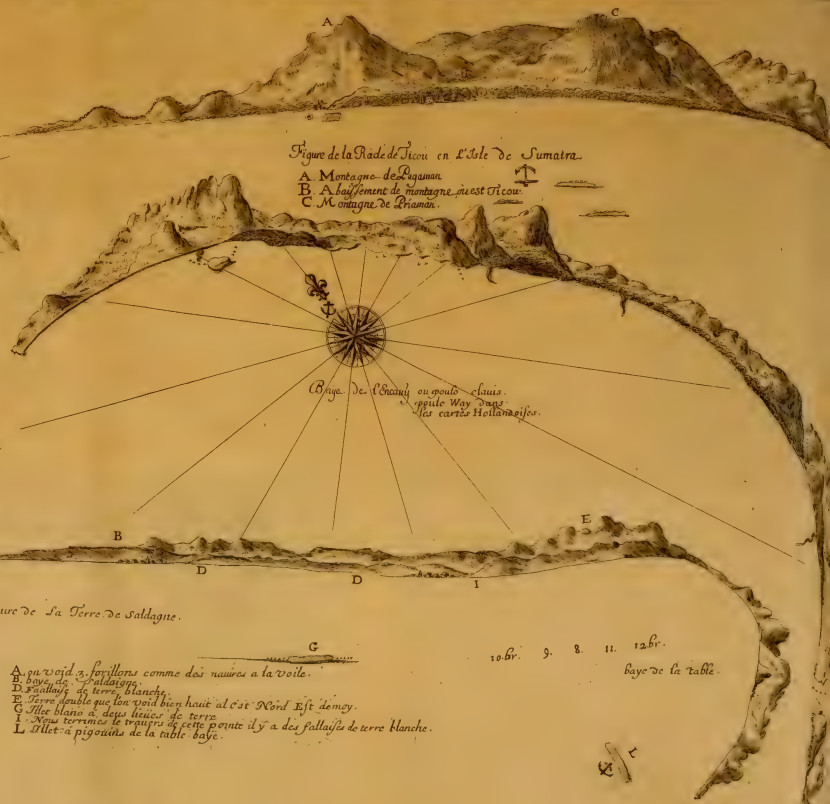 A
C
B
Figure de la Rade de Ticou en L'Isle de Sumatra
A Montagne de Pagaman
B Abaissement de montagne ou est Ticou.
C Montagne de Priaman.
Baye de l'Encauÿ ou poulo clauis.
poulo Way dans
les cartes Hollandoises.
B
D
D
I
E
ure de La Terre de Saldagne.
G
10.br. 9. 8. 11. 12br.
baye de la table.
A on void 3. forillons comme des nauires a la voile.
B. baye de Saldaigne.
D. Faallaise de terre blanche.
E Terre double que l'on void bien haut al'est Nord Est demoy.
G Illet blanc a deus lieües de terre
I. Nous terrimes le trauers de cette pointe il ÿ a des fallaises de terre blanche.
L Illet a pigouins de la table baye.
L